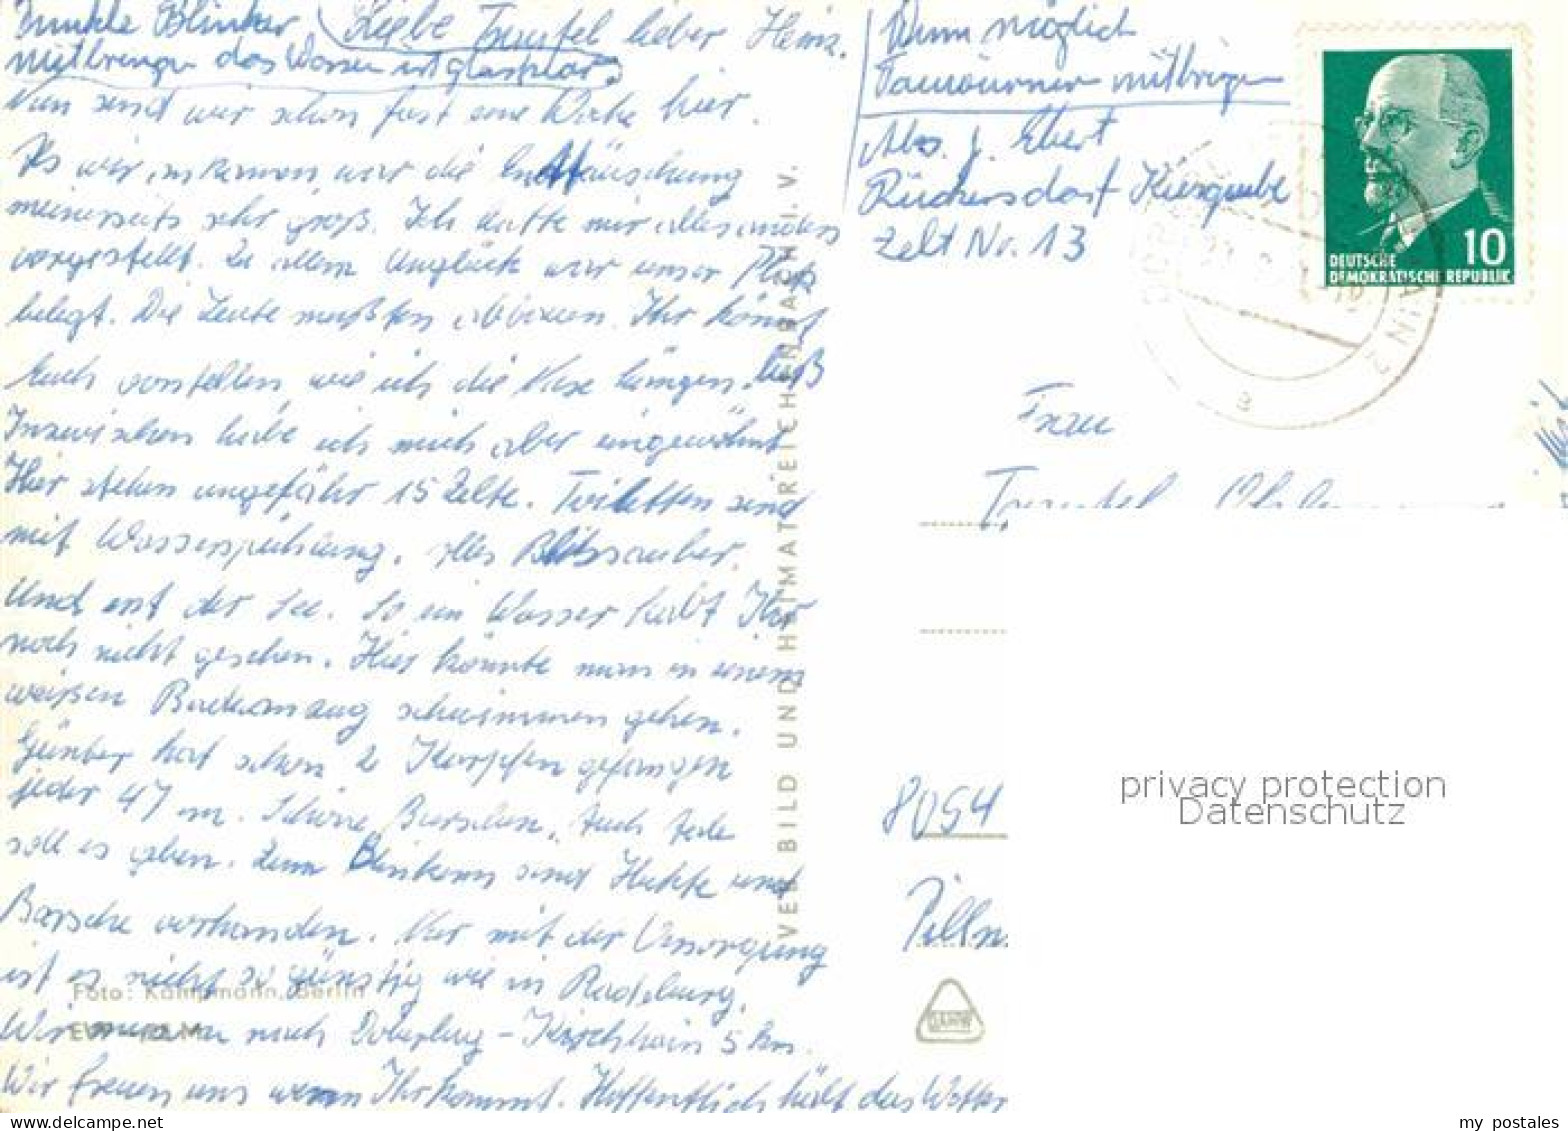 Dunkle Blinker
mitbringen das Wasser ist glasklar.
Liebe Traudel lieber Heinz.
Nun sind wir schon fast eine Woche hier.
Als wir ankamen, war die Enttäuschung
meinerseits sehr groß. Ich hatte mir alles anders
vorgestellt. Zu allem Unglück war unser Platz
belegt. Die Leute mußten abbauen. Ihr könnt
Euch vorstellen, wie ich die Nase hängen ließ
Inzwischen habe ich mich aber eingewöhnt
Hier stehen ungefähr 15 Zelte. Toiletten sind
mit Wasserspühlung. Alles Blitzsauber.
Und erst der See. So ein Wasser habt Ihr
noch nicht gesehen. Hier könnte man in einem
weißen Badeanzug schwimmen gehen.
Günter hat schon 2 Karpfen gefangen
jeder 47 cm. Schöne Burschen. Auch
soll es geben. Zum Blinkern sind Hechte und
Barsche vorhanden. Nur mit der Versorgung
ist es nicht so günstig wie in Radeburg.
Wir müssen nach Doberlug-Kirchhain 5 km.
Wir freuen uns wenn Ihr kommt. Hoffentlich hält das Wetter
Foto: Kampmann, Berlin
VEB BILD UND HEIMAT REICHENBACH I. V.
Wenn möglich
mitbringen
Abs. J. Ebert
Rückersdorf Kiesgrube
Zelt No. 13
DEUTSCHE
DEMOKRATISCHE REPUBLIK
10
Frau
8054
Pilln
privacy protection
Datenschutz
my postales